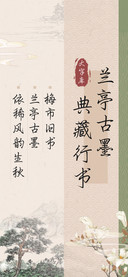 兰亭古墨
典藏行书
大字库
梅市旧书
兰亭古墨
依稀风韵生秋